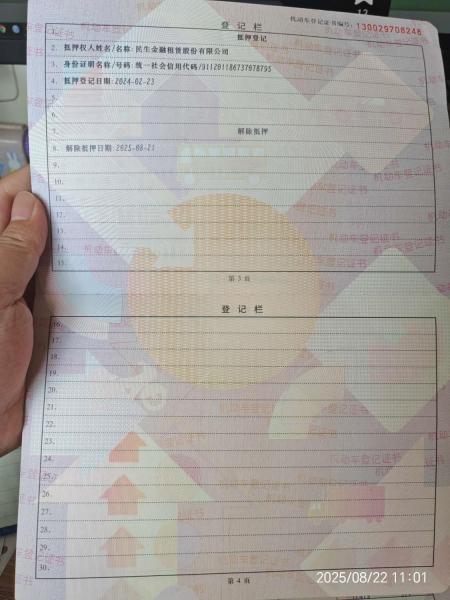 登记栏
机动车登记证书编号: 130029708248
1. 抵押登记
2. 抵押权人姓名/名称:民生金融租赁股份有限公司
3. 身份证明名称/号码:统一社会信用代码/911201186737078795
4. 抵押登记日期:2024-02-23
5.
6.
7. 解除抵押
8. 解除抵押日期:2025-08-21
9.
10.
11.
12.
13.
14.
15.
第 3 页
登记栏
16.
17.
18.
19.
20.
21.
22.
23.
24.
25.
26.
27.
28.
29.
30.
第 4 页
2025/08/22 11:01